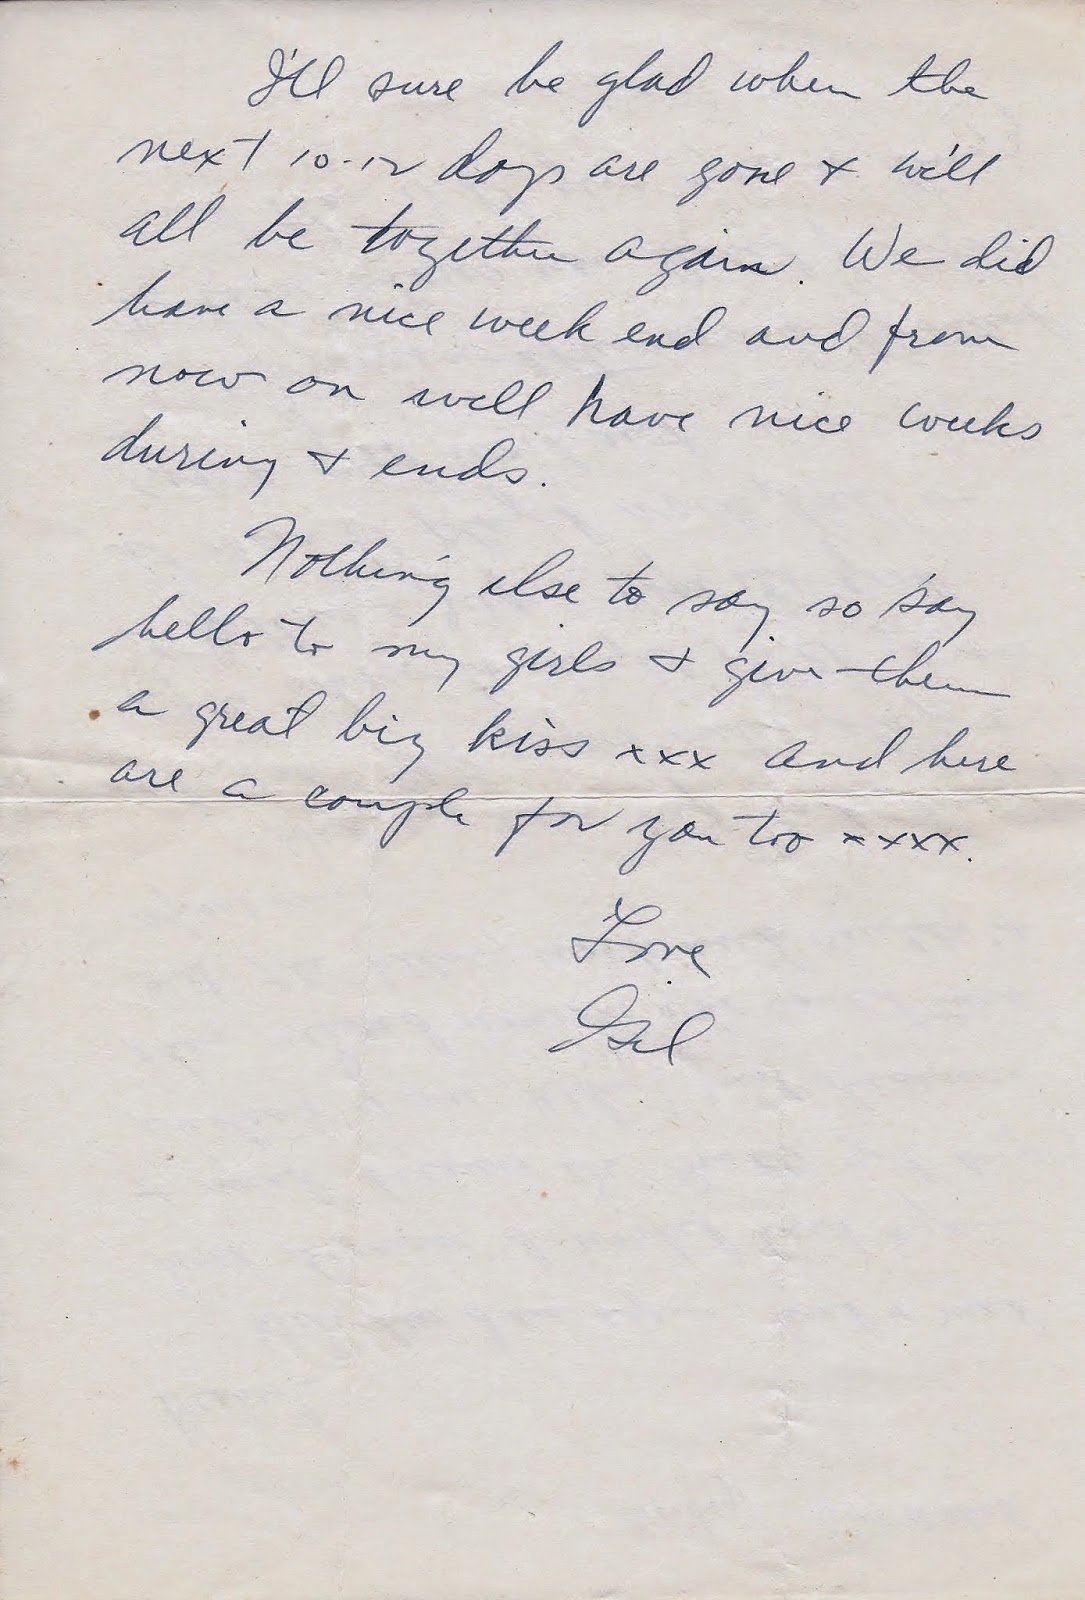 I'll sure be glad when the
next 10-12 days are gone & we'll
all be together again. We did
have a nice week end and from
now on we'll have nice weeks
during & ends.
Nothing else to say so say
hello to my girls & give them
a great big kiss xxx and here
are a couple for you too xxxx.
Love
Gil